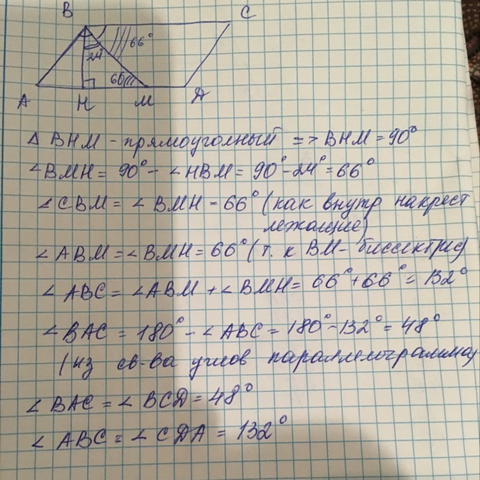 B
C
66°
24°
A
H
M
Д
Δ BHM - прямоуголный => BHM = 90°
∠BMH = 90° - ∠HBM = 90° - 24° = 66°
∠CBM = ∠BMH - 66° (как внутр накрест
лежащие)
∠ABM = ∠BMH = 66° (т. к BM -
∠ABC = ∠ABM + ∠BMH = 66° + 66° = 132°
∠BAC = 180° - ∠ABC = 180° - 132° = 48°
(из св-ва углов параллелограмма)
∠BAC = ∠BCД = 48°
∠ABC = ∠CДA = 132°